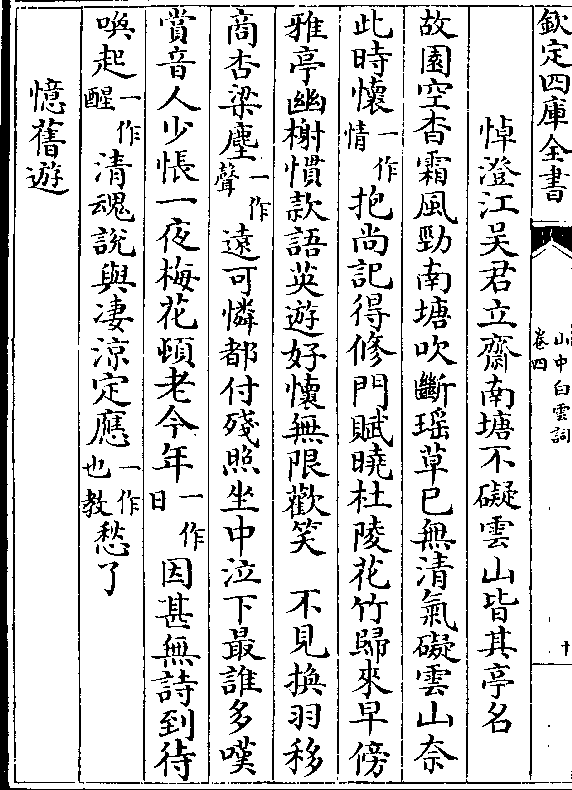 欽定四庫全書
山中白雲詞
卷四
十
悼澄江吴君立齋南塘不礙雲山皆其亭名
故園空杳霜風勁南塘吹斷瑶草已無清氣礙雲山奈
此時懷一作情抱尚記得修門賦曉杜陵花竹歸來早傍
雅亭幽榭慣款語英遊好懷無限歡笑　不見換羽移
商杏梁塵一作聲遠可憐都付殘照坐中泣下最誰多嘆
賞音人少悵一夜梅花頓老今年一作日因甚無詩到待
喚起一作醒清魂說與凄涼定應一作也教愁了
憶舊遊